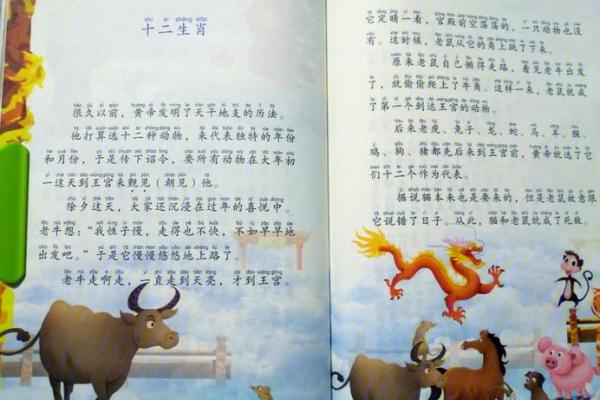 十二生肖
很久以前，黄帝发明了天干地支的历法。
他打算选十二种动物，来代表独特的年份
和月份，于是传下诏令，要所有动物在大年初
一这天到王宫来觐见（朝见）他。
除夕这天，大家还沉浸在过年的喜悦中。
老牛想：“我性子慢，走得也不快，不如早早地
出发吧。”于是它慢慢悠悠地上路了。
老牛走啊走，一直走到天亮，才到王宫。
它定睛一看，宫殿前空荡荡的，一只动物也没
有。这时候，老鼠从它的角上跳了下来。
原来老鼠自己懒得走路，看见老牛出发
了，就偷偷爬上了牛角。这样一来，老鼠就成
了第一个到达王宫的动物。
后来老虎、兔子、龙、蛇、马、羊、猴、
鸡、狗、猪都先后来到王宫前，黄帝就选了它
们十二个作为代表。
据说猫本来也是要来的，但是老鼠故意跟
它说错了日子。从此，猫和老鼠就成了死敌。